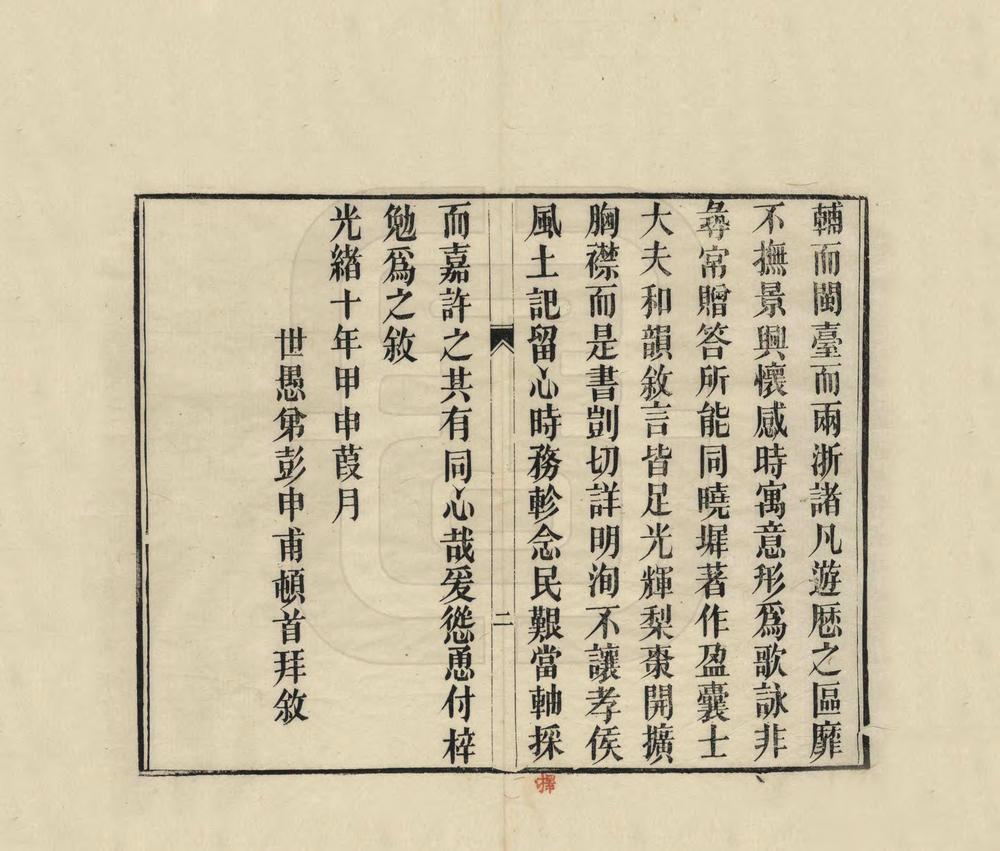 輔而閩臺而兩浙諸凡遊厯之區靡
不撫景興懷感時寓意形爲歌詠非
尋常贈答所能同曉墀著作盈囊士
大夫和韻敘言皆足光輝梨棗開擴
胸襟而是書剴切詳明洵不讓孝侯
風土記留心時務軫念民艱當軸採
二
而嘉許之其有同心哉爰慫恿付梓
勉爲之敘
光緒十年甲申葭月
世愚弟彭申甫頓首拜敘
擇